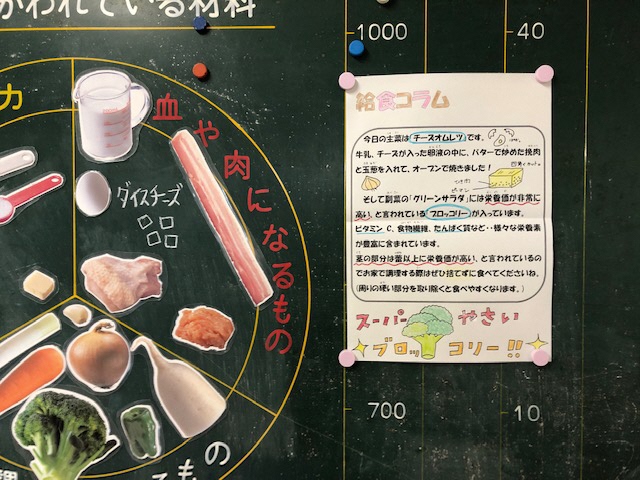 かわれている材料
力
血や肉になるもの
ダイスチーズ
もの
1000
40
700
10
給食コラム
今日の主菜は チーズオムレツ です。
牛乳、チーズが入った卵液の中に、バターで炒めた挽肉
と玉葱を入れて、オーブンで焼きました!
そして副菜の「グリーンサラダ」には栄養価が非常に
高い、と言われている ブロッコリー が入っています。
ビタミン C、食物繊維、たんぱく質など・・様々な栄養素
が豊富に含まれています。
茎の部分は蕾以上に栄養価が高い、と言われているの
でお家で調理する際はぜひ捨てずに食べてくださいね。
(周りの硬い部分を取り除くと食べやすくなります。)
スーパーやさい
ブロッコリー!!